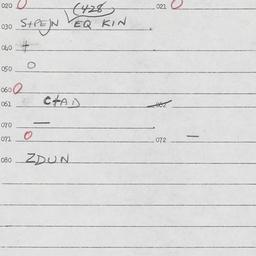 020 0 021 0
(428)
030 S+PEJN EQ KIN
040 +
050 0
060 0
061 C+AD 062
070 —
071 0 072 —
080 ZDUN